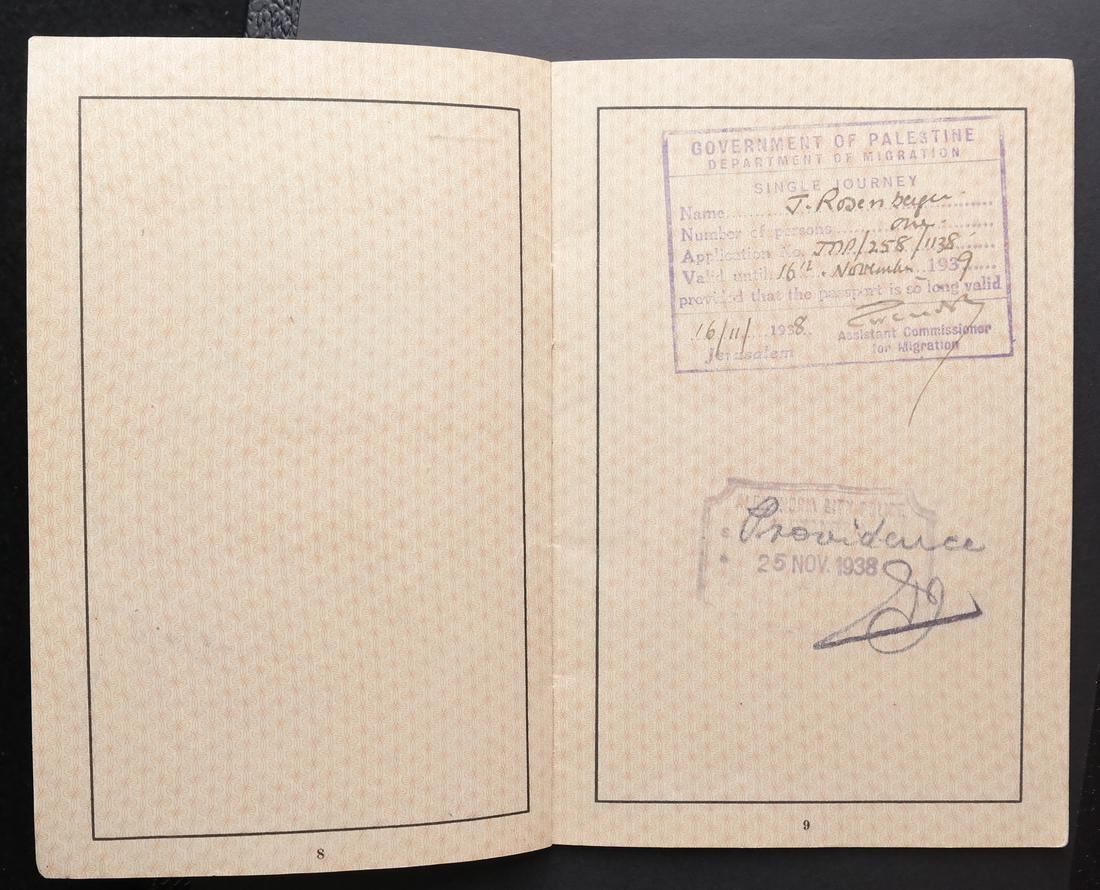 GOVERNMENT OF PALESTINE
DEPARTMENT OF MIGRATION
SINGLE JOURNEY
Name J. Rosenberger
Number of persons one
Application No. /258/1138
Valid until 16th November 1939
provided that the passport is so long valid
16/11/ 1938
Assistant Commissioner
Jerusalem
for Migration
CITY POLICE
Providence
25 NOV. 1938
8
9